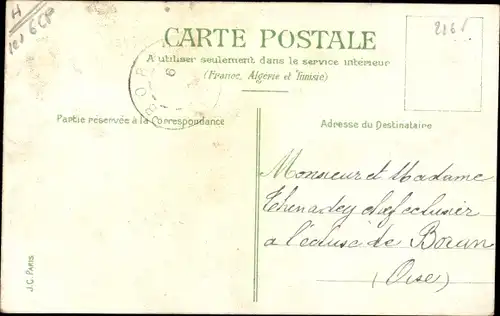 H
CARTE POSTALE
A utiliser seulement dans le service intérieur
(France, Algérie et Tunisie)
BOR
6
Partie réservée à la Correspondance
Adresse du Destinataire
Monsieur et Madame
chef eclusier
a l'écluse de Boran
(Oise)
J.C. PARIS